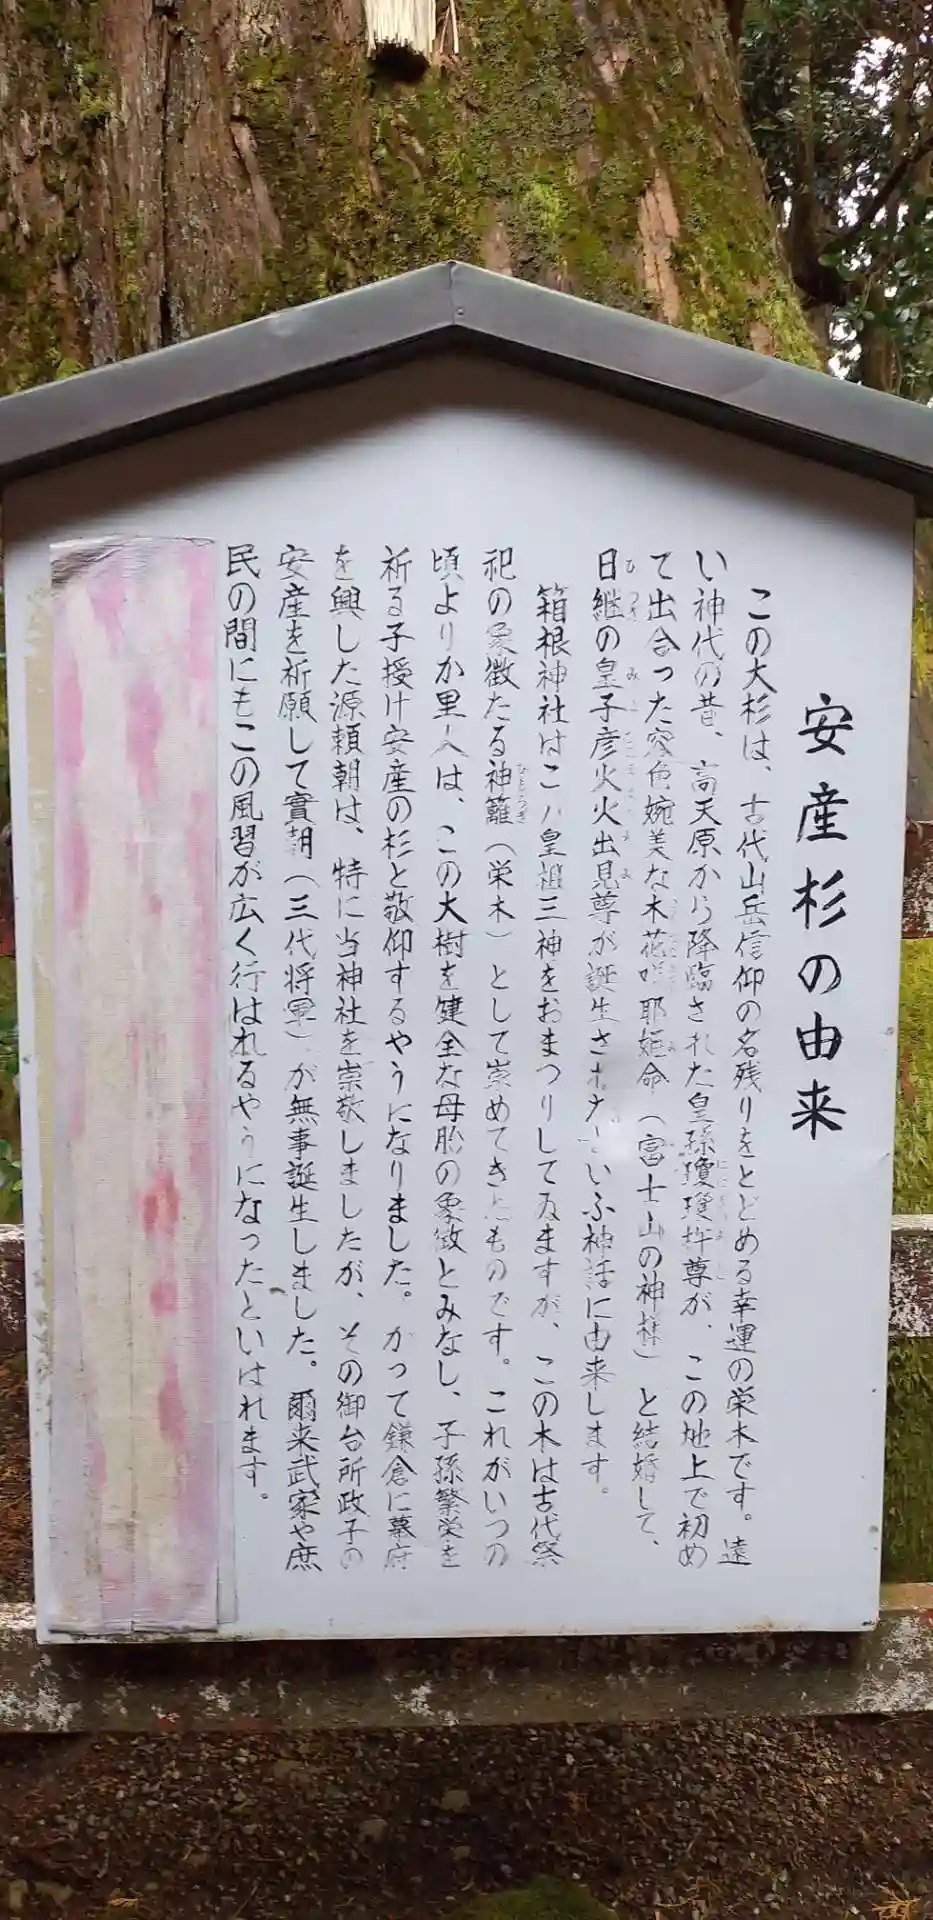 安産杉の由来
この大杉は、古代山岳信仰の名残りをとどめる幸運の栄木です。遠
い神代の昔、高天原から降臨された皇孫瓊瓊杵尊が、この地上で初め
て出合った容色婉美な木花咲耶姫命（富士山の神様）と結婚して、
日継の皇子彦火火出見尊が誕生さいふ神話に由来します。
箱根神社はこ皇祖三神をおまつりしてゐますが、この木は古代祭
祀の象徴たる神籬（栄木）として崇めてきたものです。これがいつの
頃よりか里人は、この大樹を健全な母胎の象徴とみなし、子孫繁栄を
祈る子授け安産の杉と敬仰するやうになりました。かつて鎌倉に幕府
を興した源頼朝は、特に当神社を崇敬しましたが、その御台所政子の
安産を祈願して實朝（三代将軍）が無事誕生しました。爾来武家や庶
民の間にもこの風習が広く行はれるやうになったといはれます。